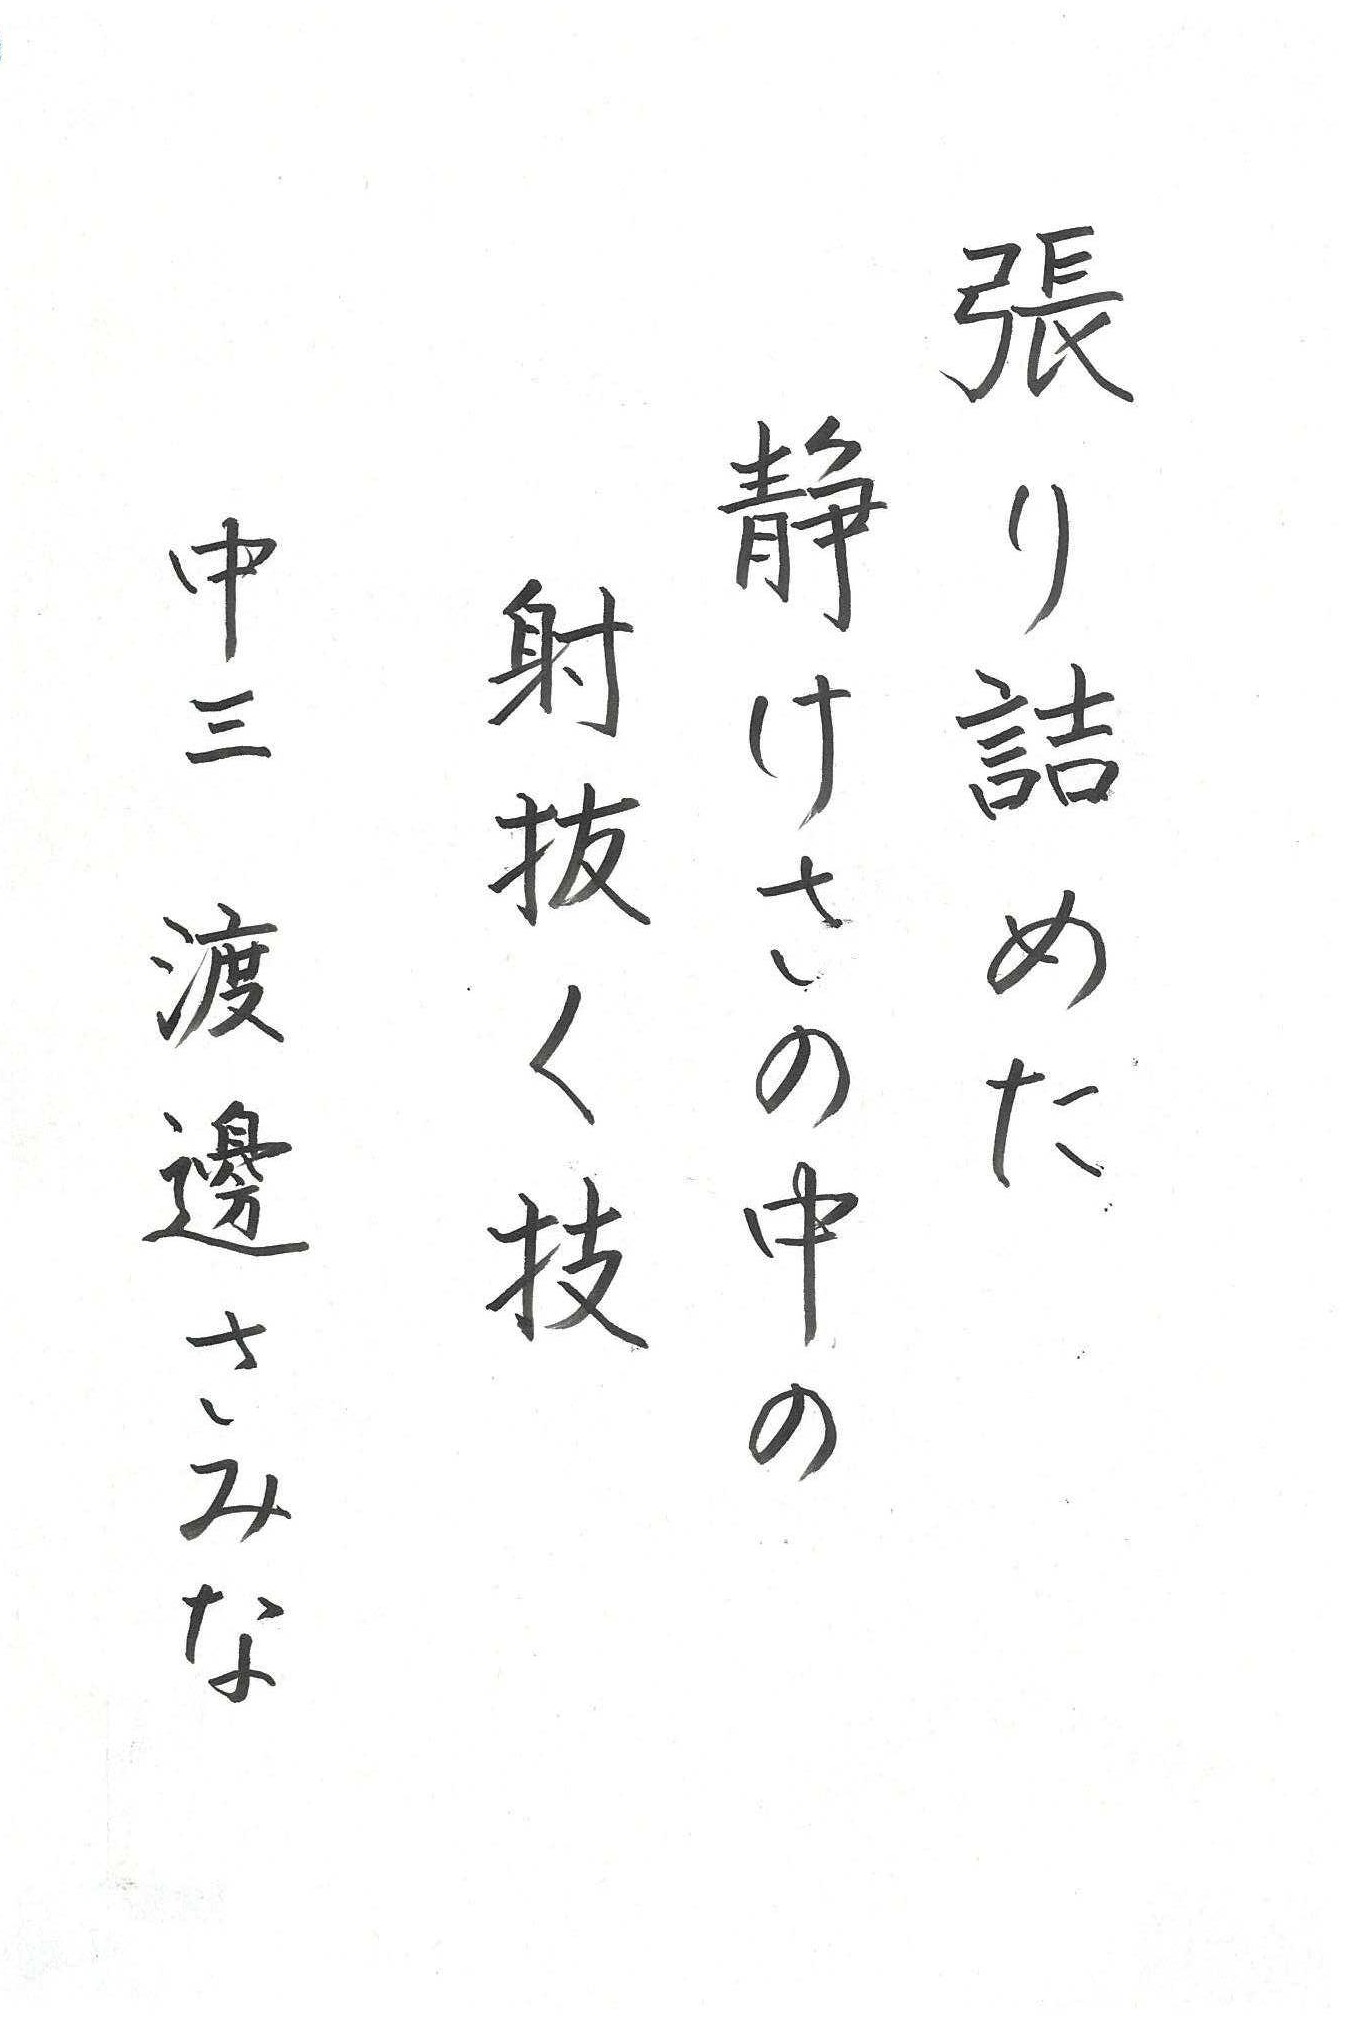 張り詰めた
静けさの中の
射抜く技
中三 渡邊さみな